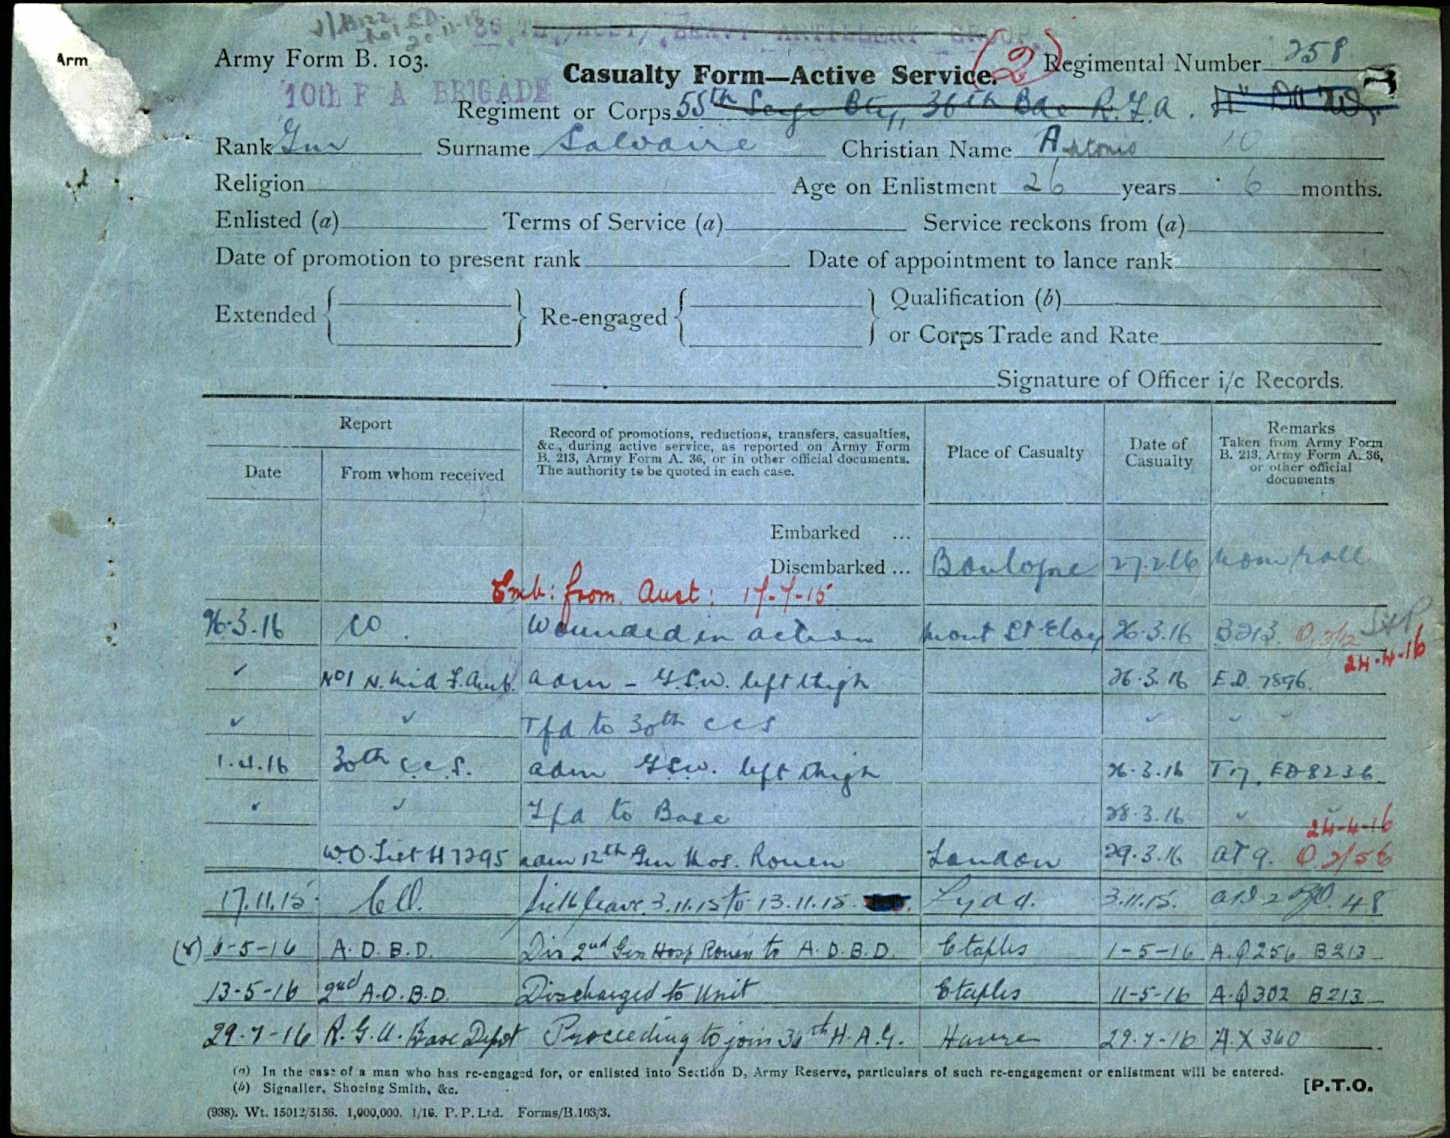 36 TH AUST, HEAVY ARTILLERY GROUP.
Arm
Army Form B. 103.
10th F A BRIGADE
Casualty Form—Active Service.
(2)
Regimental Number 258
Regiment or Corps 55th Siege Bty, 36th Bde R.G.A.
Rank Gnr Surname Salvaire Christian Name Antonio
Religion Age on Enlistment 26 years 6 months.
Enlisted (a) Terms of Service (a) Service reckons from (a)
Date of promotion to present rank Date of appointment to lance rank
Extended Re-engaged Qualification (b)
or Corps Trade and Rate
Signature of Officer i/c Records.
Report
Date
From whom received
Record of promotions, reductions, transfers, casualties,
&c., during active service, as reported on Army Form
B. 213, Army Form A. 36, or in other official documents.
The authority to be quoted in each case.
Place of Casualty
Date of
Casualty
Remarks
Taken from Army Form
B. 213, Army Form A. 36,
or other official
documents
Embarked ...
Disembarked ... Boulogne 27.2.16 Nom roll
Emb: from Aust: 17-7-15
26.3.16 CO. Wounded in action Mont St Eloy 26.3.16 B213
24-4-16
✓ No1 N. Mid F. Amb. adm - G.S.W. left thigh 26.3.16 E.D. 7896.
✓ ✓ Tfd to 30th CCS ✓ ✓ ✓
1.4.16 30th C.C.S. adm GSW. left thigh 26.3.16 ED 8236
✓ ✓ Tfd to Base 28.3.16 ✓
24-4-16
W.O. List H 7295 adm 12th Gen Hos. Rouen London 29.3.16
17.11.15. C.O. Sick leave 3.11.15 to 13.11.15. Lydd. 3.11.15. 48
(8) 6-5-16 A.D.B.D. Dis 2nd Gen Hosp Rouen to A.D.B.D. Etaples 1-5-16 A.Q 256 B213
13-5-16 2nd A.D.B.D. Discharged to Unit Etaples 11-5-16 A.Q 302 B213
29-7-16 R.G.A. Base Depot Proceeding to join 36th H.A.G. Havre 29-7-16 A X 360
(a) In the case of a man who has re-engaged for, or enlisted into Section D, Army Reserve, particulars of such re-engagement or enlistment will be entered.
(b) Signaller, Shoeing Smith, &c.
[P.T.O.
(938). Wt. 15012/5156. 1,000,000. 1/16. P. P. Ltd. Forms/B.103/3.